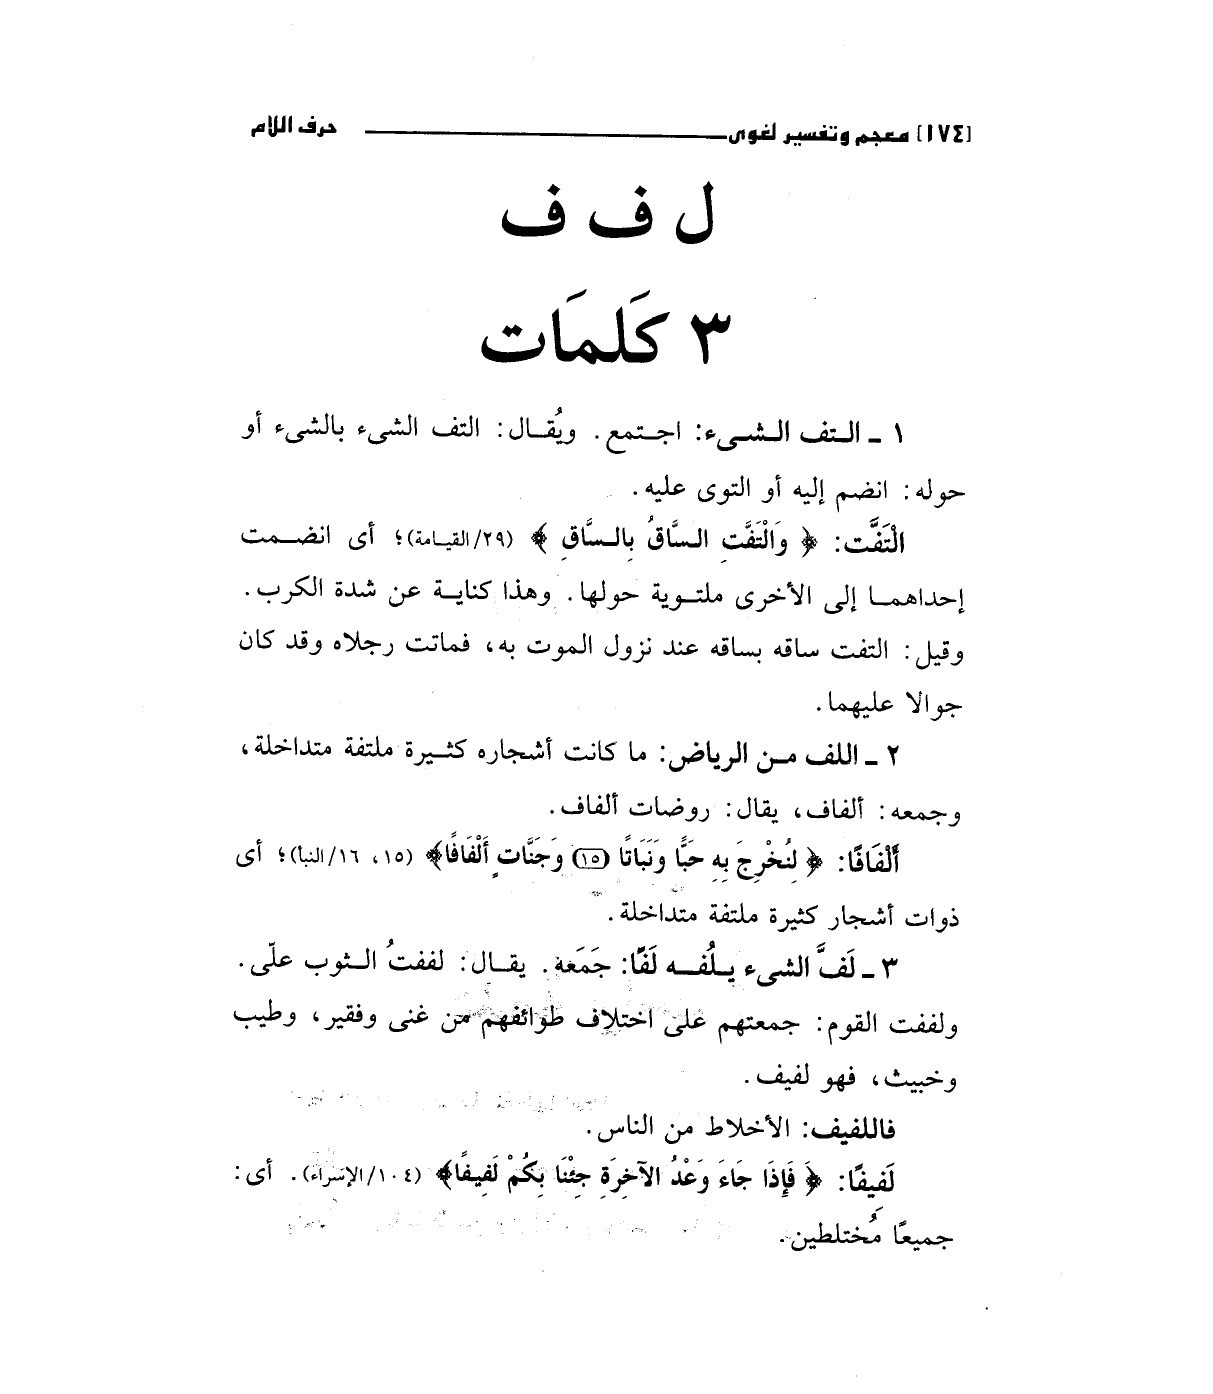 [١٧٤] معجم وتفسير لغوى حرف اللام
ل ف ف
٣ كَلمَات
١ ـ الـتف الـشـىء: اجـتمع. ويُقـال: التف الشىء بالشىء أو
حوله: انضم إليه أو التوى عليه.
الْتَفَّت: ﴿ وَالْتَفَّتِ الـسَّاقُ بِالـسَّاقِ ﴾ (٢٩/القيـامة)؛ أى انضـمت
إحداهمـا إلى الأخرى ملتـوية حولها. وهذا كنايـة عن شدة الكرب.
وقيل: التفت ساقه بساقه عند نزول الموت به، فماتت رجلاه وقد كان
جوالا عليهما.
٢ ـ اللف مـن الرياض: ما كانت أشجاره كثـيرة ملتفة متداخلة،
وجمعه: ألفاف، يقال: روضات ألفاف.
أَلْفَافًا: ﴿ لِنُخْرِجَ بِهِ حَبًّا وَنَبَاتًا (١٥) وَجَنَّاتٍ أَلْفَافًا﴾ (١٥، ١٦/النبأ)؛ أى
ذوات أشجار كثيرة ملتفة متداخلة.
٣ ـ لَفَّ الشىء يـلُفـه لَفًا: جَمَعَه. يقـال: لففتُ الـثوب علىّ.
ولففت القوم: جمعتهم على اختلاف طوائفهم من غنى وفقير، وطيب
وخبيث، فهو لفيف.
فاللفيف: الأخلاط من الناس.
لَفيفًا: ﴿ فَإِذَا جَاءَ وَعْدُ الآخِرَةِ جِئْنَا بِكُمْ لَفِيفًا﴾ (١٠٤/الإسراء). أى:
جميعًا مُختلطين.